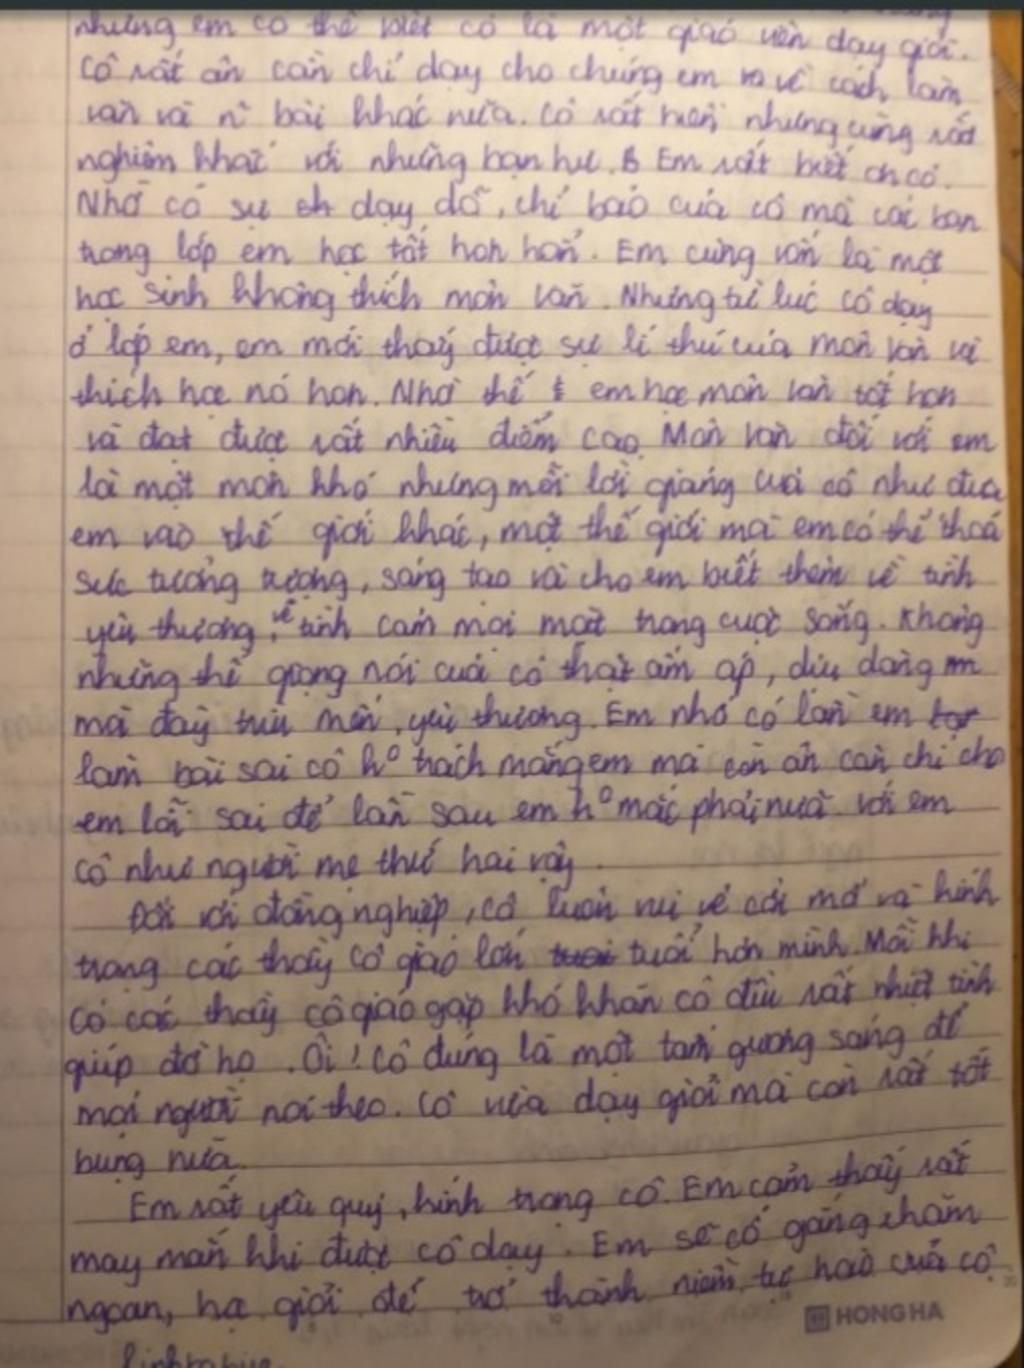 nhưng em có thể biết cô là một giáo viên dạy giỏi.
Cô rất ân cần chỉ dạy cho chúng em về cách làm
văn và n` bài khác nữa. Cô rất hiền nhưng cũng rất
nghiêm khắc với những bạn hư. Em rất biết ơn cô.
Nhờ có sự dạy dỗ, chỉ bảo của cô mà các bạn
trong lớp em học tốt hơn hẳn. Em cũng vốn là một
học sinh không thích môn văn. Nhưng từ lúc cô dạy
ở lớp em, em mới thấy được sự lí thú của môn văn và
thích học nó hơn. Nhờ thế em học môn văn tốt hơn
và đạt được rất nhiều điểm cao. Môn văn đối với em
là một môn khó nhưng mỗi lời giảng của cô như đưa
em vào thế giới khác, một thế giới mà em có thể thoả
sức tưởng tượng, sáng tạo và cho em biết thêm về tình
yêu thương, về tình cảm mọi mặt trong cuộc sống. Không
những thế giọng nói của cô thật ấm áp, dịu dàng
mà đầy trìu mến, yêu thương. Em nhớ có lần em
làm bài sai cô k° trách mắng em mà còn ân cần chỉ cho
em lỗi sai để lần sau em k° mắc phải nữa. Với em
cô như người mẹ thứ hai vậy.
Đối với đồng nghiệp, cô luôn vui vẻ cởi mở và kính
trọng các thầy cô giáo lớn tuổi hơn mình. Mỗi khi
có các thầy cô giáo gặp khó khăn cô đều rất nhiệt tình
giúp đỡ họ. Ôi! Cô đúng là một tấm gương sáng để
mọi người noi theo. Cô vừa dạy giỏi mà còn rất tốt
bụng nữa.
Em rất yêu quý, kính trọng cô. Em cảm thấy rất
may mắn khi được cô dạy. Em sẽ cố gắng chăm
ngoan, học giỏi để trở thành niềm tự hào của cô
HONG HA